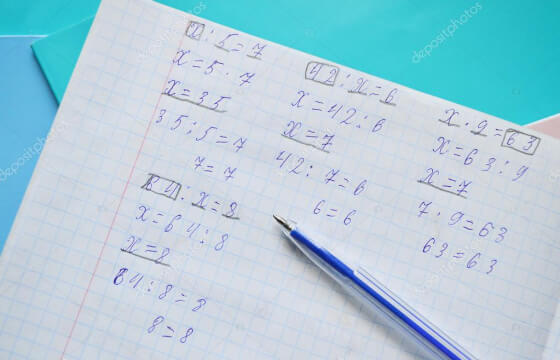 x : 5 = 7
x = 5 · 7
x = 35
35 : 5 = 7
7 = 7
64 : x = 8
x = 64 : 8
x = 8
64 : 8 = 8
8 = 8
42 : x = 6
x = 42 : 6
x = 7
42 : 7 = 6
6 = 6
x · 9 = 63
x = 63 : 9
x = 7
7 · 9 = 63
63 = 63
depositphotos
depositphotos
depositphotos
depositphotos
depositphotos
depositphotos